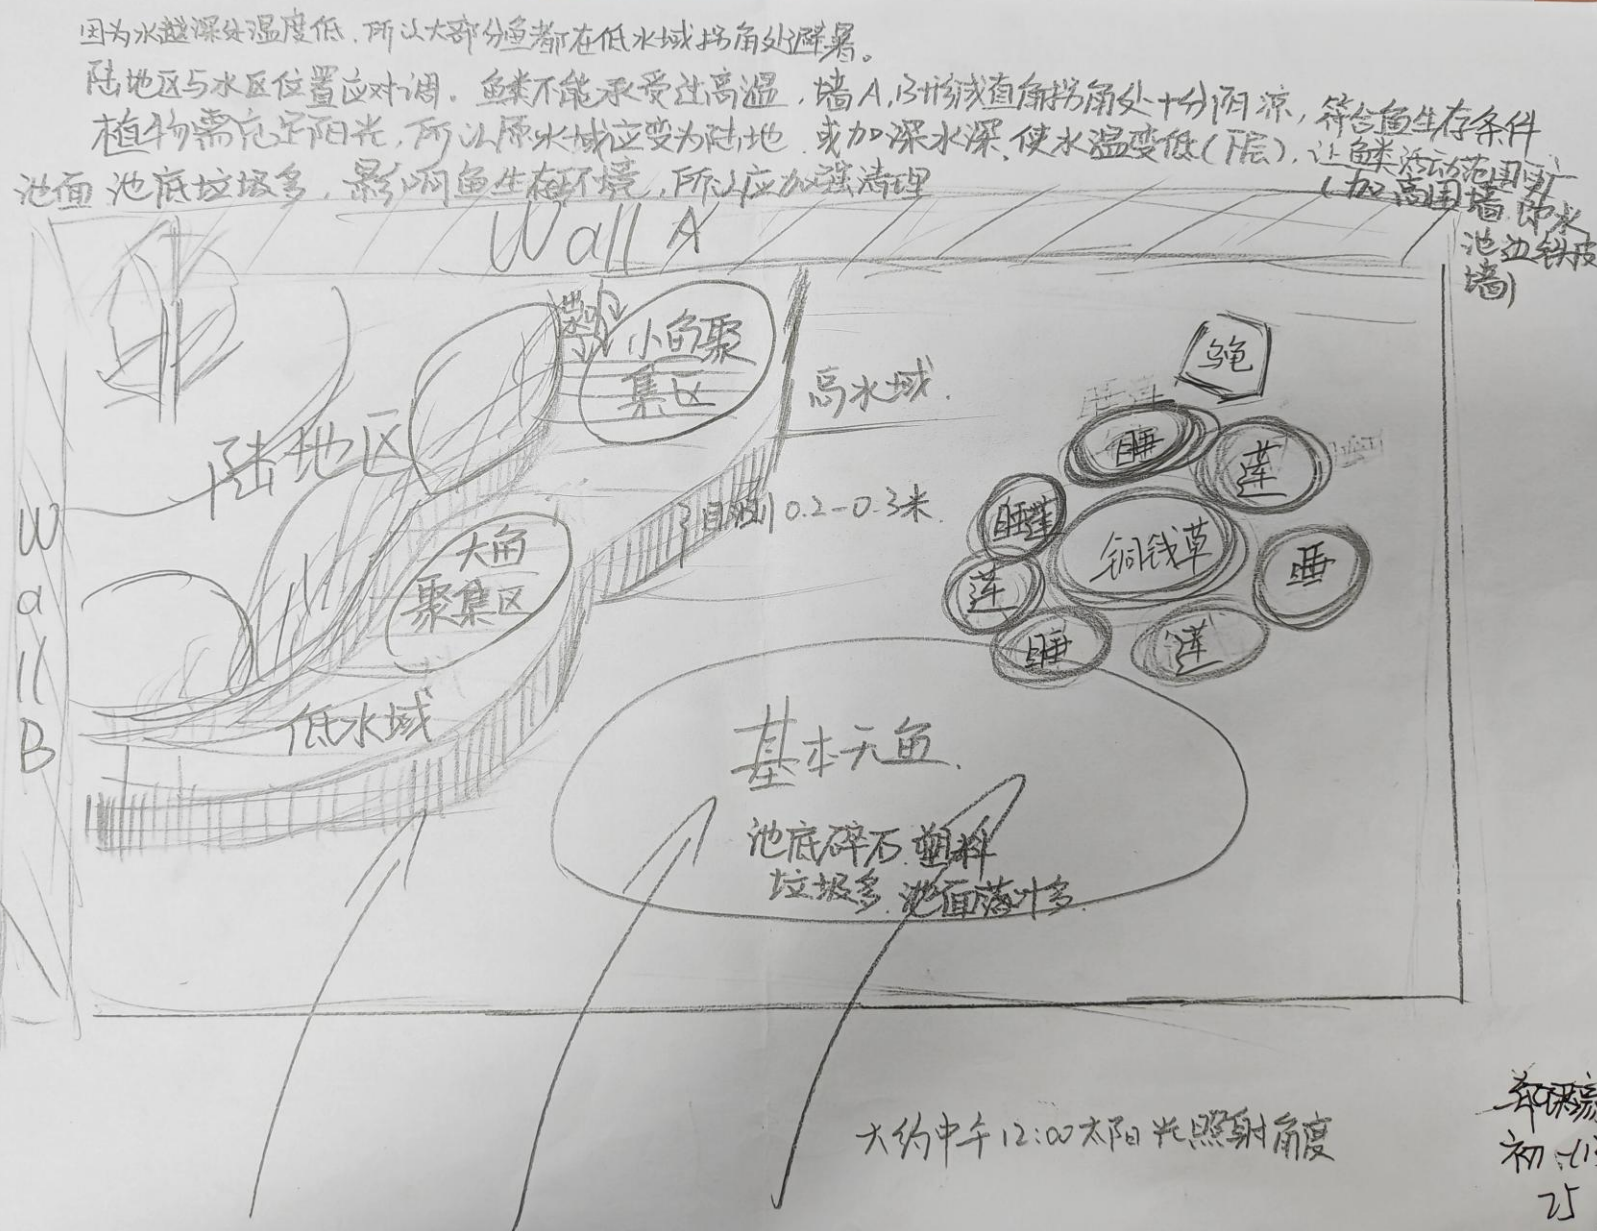 因为水越深处温度低，所以大部分鱼都在低水域拐角处避暑。
陆地区与水区位置应对调。鱼类不能承受过高温，墙A,B形成直角拐角处十分阴凉，符合鱼生存条件
植物需充足阳光，所以原水域应变为陆地 或加深水深，使水温变低(下层)，让鱼类活动范围更广
池面 池底垃圾多，影响鱼生存环境，所以应加强清理
(加高围墙 即水
池边铁皮
墙)
Wall A
小鱼聚
集区
高水域.
乌龟
陆地区
睡
莲
目测 0.2-0.3米
睡莲
铜钱草
睡
大鱼
聚集区
莲
睡
莲
Wall B
低水域
基本无鱼.
池底碎石.塑料
垃圾多.池面落叶多
大约中午12:00太阳光照射角度
初
25